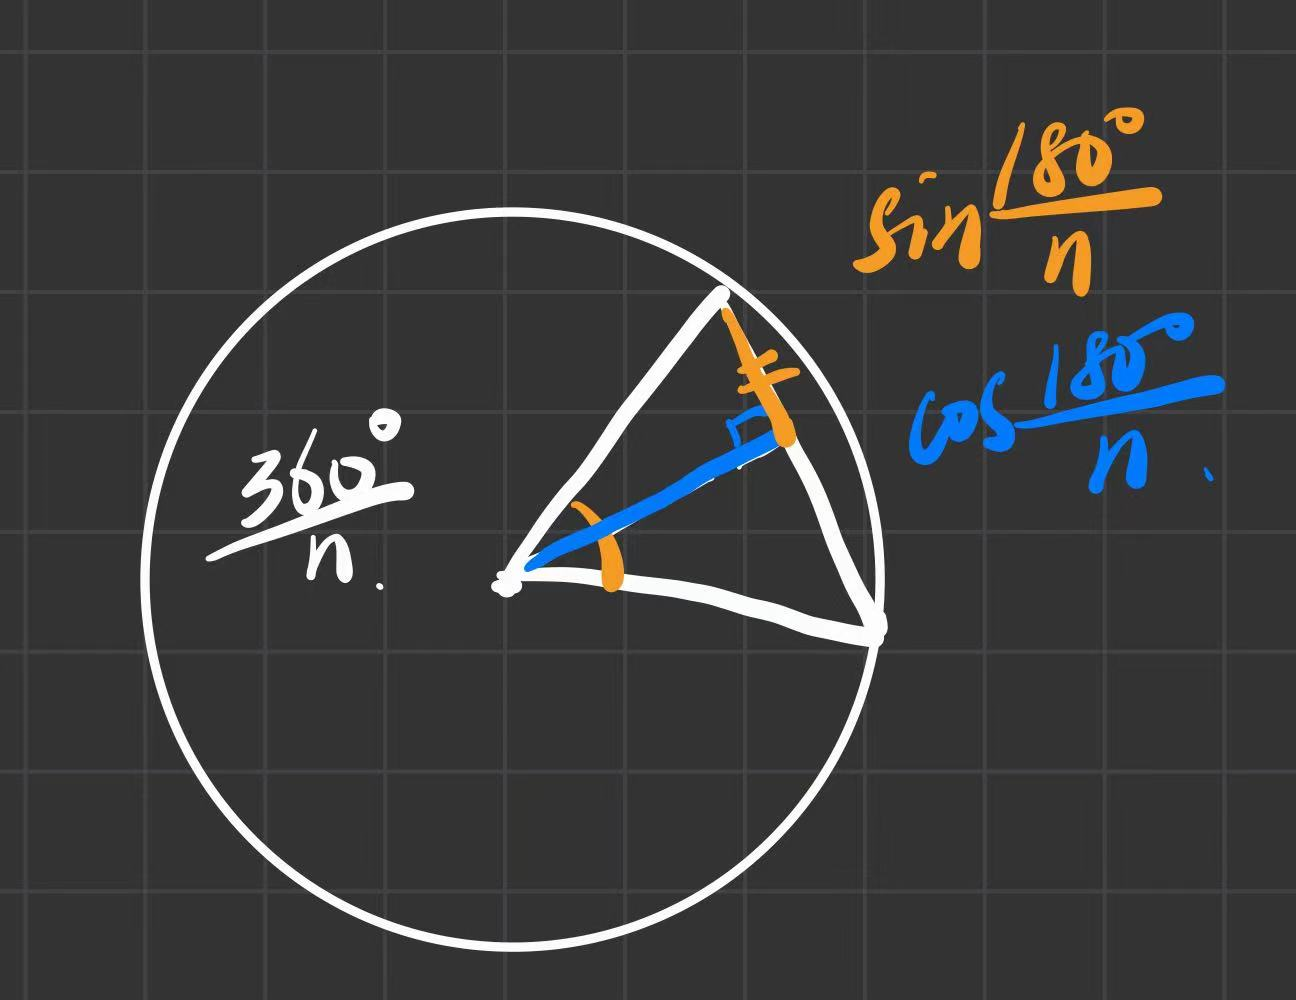 sin 180°/n
cos 180°/n.
360°/n.